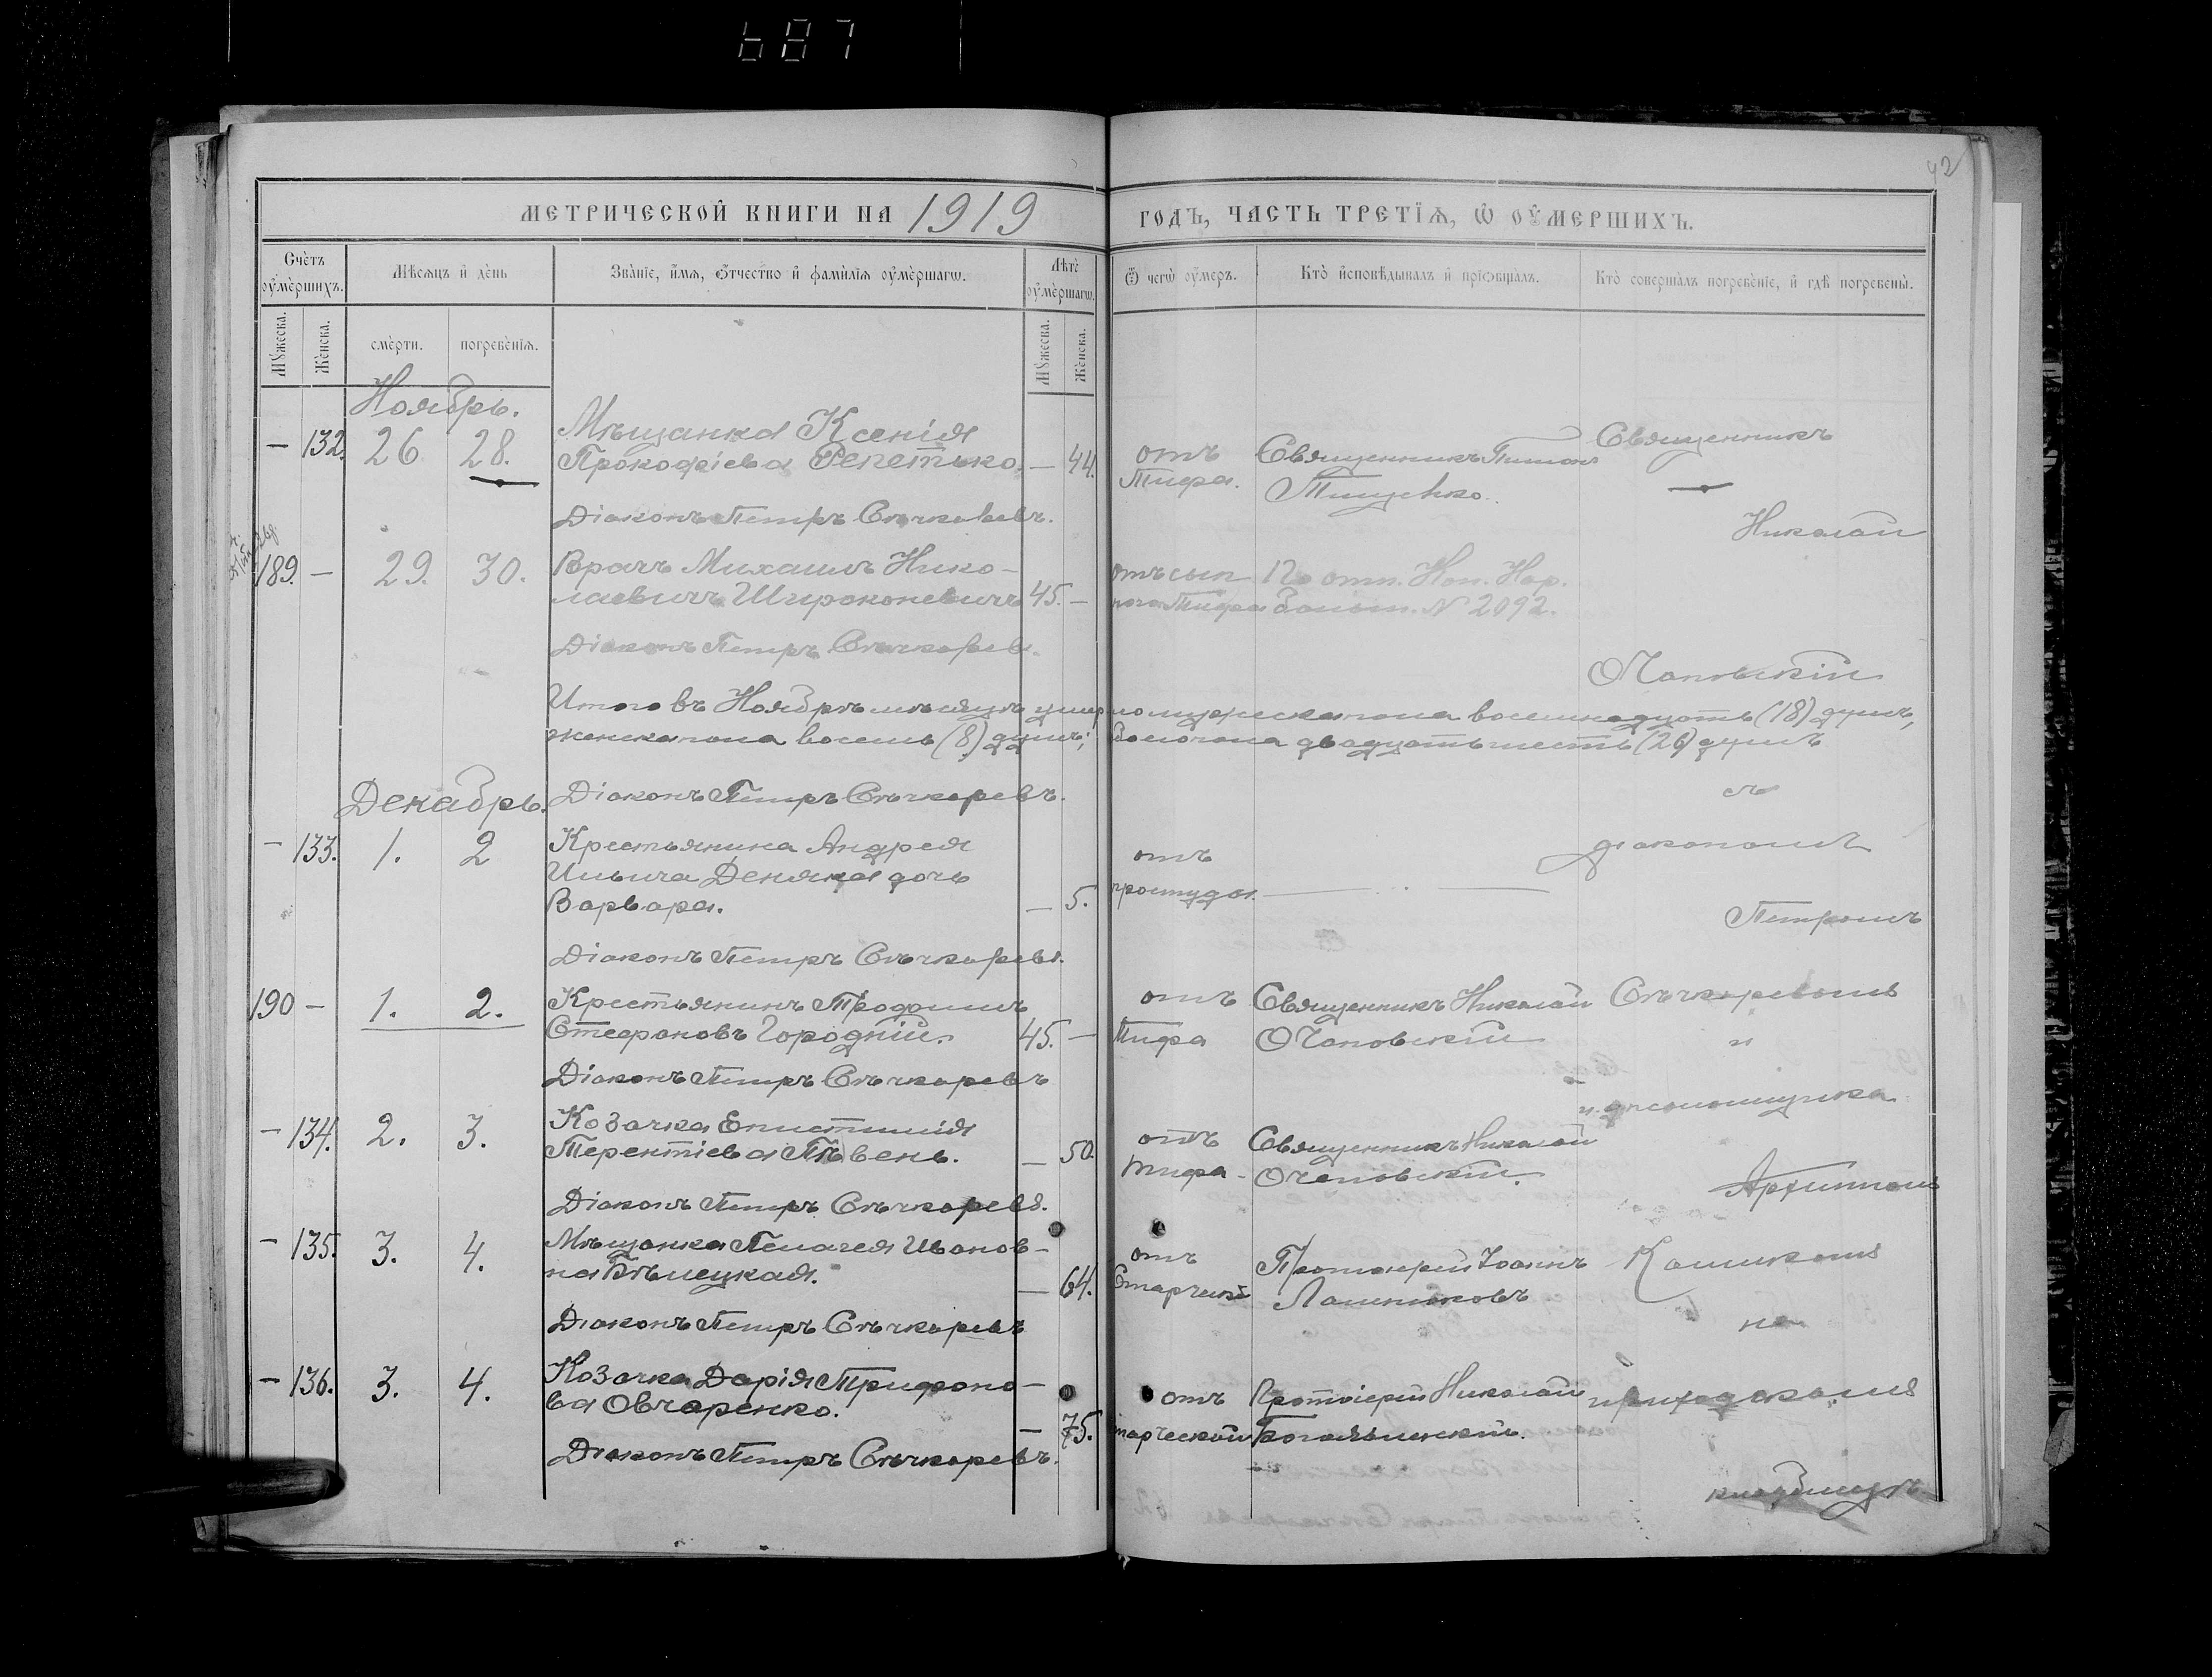 687
42
МЕТРИЧЕСКОЙ КНИГИ НА 1919 ГОДЪ, ЧАСТЬ ТРЕТІѦ, Ѡ ОУМЕРШИХЪ.
Счетъ оумершихъ.
Мѣсяцъ и день
Званіе, имя, отчество и фамилія оумершагѡ.
Лѣта оумершагѡ.
Ѿ чегѡ оумеръ.
Кто исповѣдывалъ и пріобщалъ.
Кто совершалъ погребеніе, и гдѣ погребены.
Мужеска.
Женска.
смерти.
погребенія.
Мужеска.
Женска.
Ноябрь.
— 132. 26 28. Мѣщанка Ксенія
Прокофіева Репетько. — 44. отъ Тифа. Священникъ Пимон Тищенко. Священникъ
Діаконъ Петръ Сѣчкаревъ.
Николай
189. — 29. 30. Врачъ Михаилъ Нико-
лаевичъ Широконевичъ 45. — отъ сып
ного Тифа По отн. Кон. Хар.
больн. N 2092.
Діаконъ Петръ Сѣчкаревъ.
Очаповскій
Итого въ Ноябрѣ мѣсяцѣ умерло мужеска пола восемнадцать (18) душъ,
женска пола восемь (8) душъ; обоего пола двадцать шесть (26) душъ
Декабрь. Діаконъ Петръ Сѣчкаревъ. съ
— 133. 1. 2 Крестьянина Андрея
Ильича Деняка дочь
Варвара. — 5. отъ
простуды. діакономъ
Петромъ
Діаконъ Петръ Сѣчкаревъ.
190 — 1. 2. Крестьянинъ Продомъ
Стефановъ Городній. 45. — отъ
Тифа Священникъ Николай
Очаповскій Сѣчкаревымъ
и
Діаконъ Петръ Сѣчкаревъ
и. псаломщика
— 134. 2. 3. Козачка Епистимія
Терентіева Пѣвень. — 50. отъ
тифа Священникъ Николай
Очаповскій.
Архипомъ
Діаконъ Петръ Сѣчкаревъ.
— 135. 3. 4. Мѣщанка Пелагея Иванов-
на Бѣлецкая. — 64. отъ
Старческ Протоіерей Іоаннъ
Лашниковъ Кашикомъ
на
Діаконъ Петръ Сѣчкаревъ
— 136. 3. 4. Козачка Дарія Трифоно-
ва Овчаренко. — 75. отъ
старческой Протоіерей Николай
приходскомъ
Діаконъ Петръ Сѣчкаревъ.
кладбищѣ